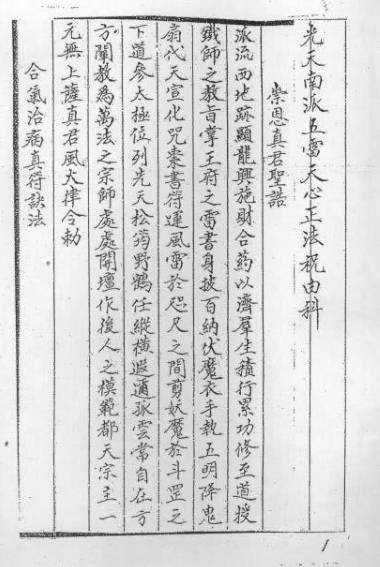 光天南派五雷天心正法祝由科
崇恩真君聖誥
派流西地跡顯龍興施財合药以濟羣生積行累功修至道授
鐵師之教旨掌王府之雷書身披百納伏魔衣手執五明降鬼
扇代天宣化咒棗書符運風雷於咫尺之間剪妖魔於斗罡之
下道参太極位列先天松筠野鶴任縱橫遐邇孤雲常自在方
方闡教為萬法之宗師處處開壇作後人之模範都天宗主一
元無上薩真君風火律令勅
合氣治病真符訣法
1